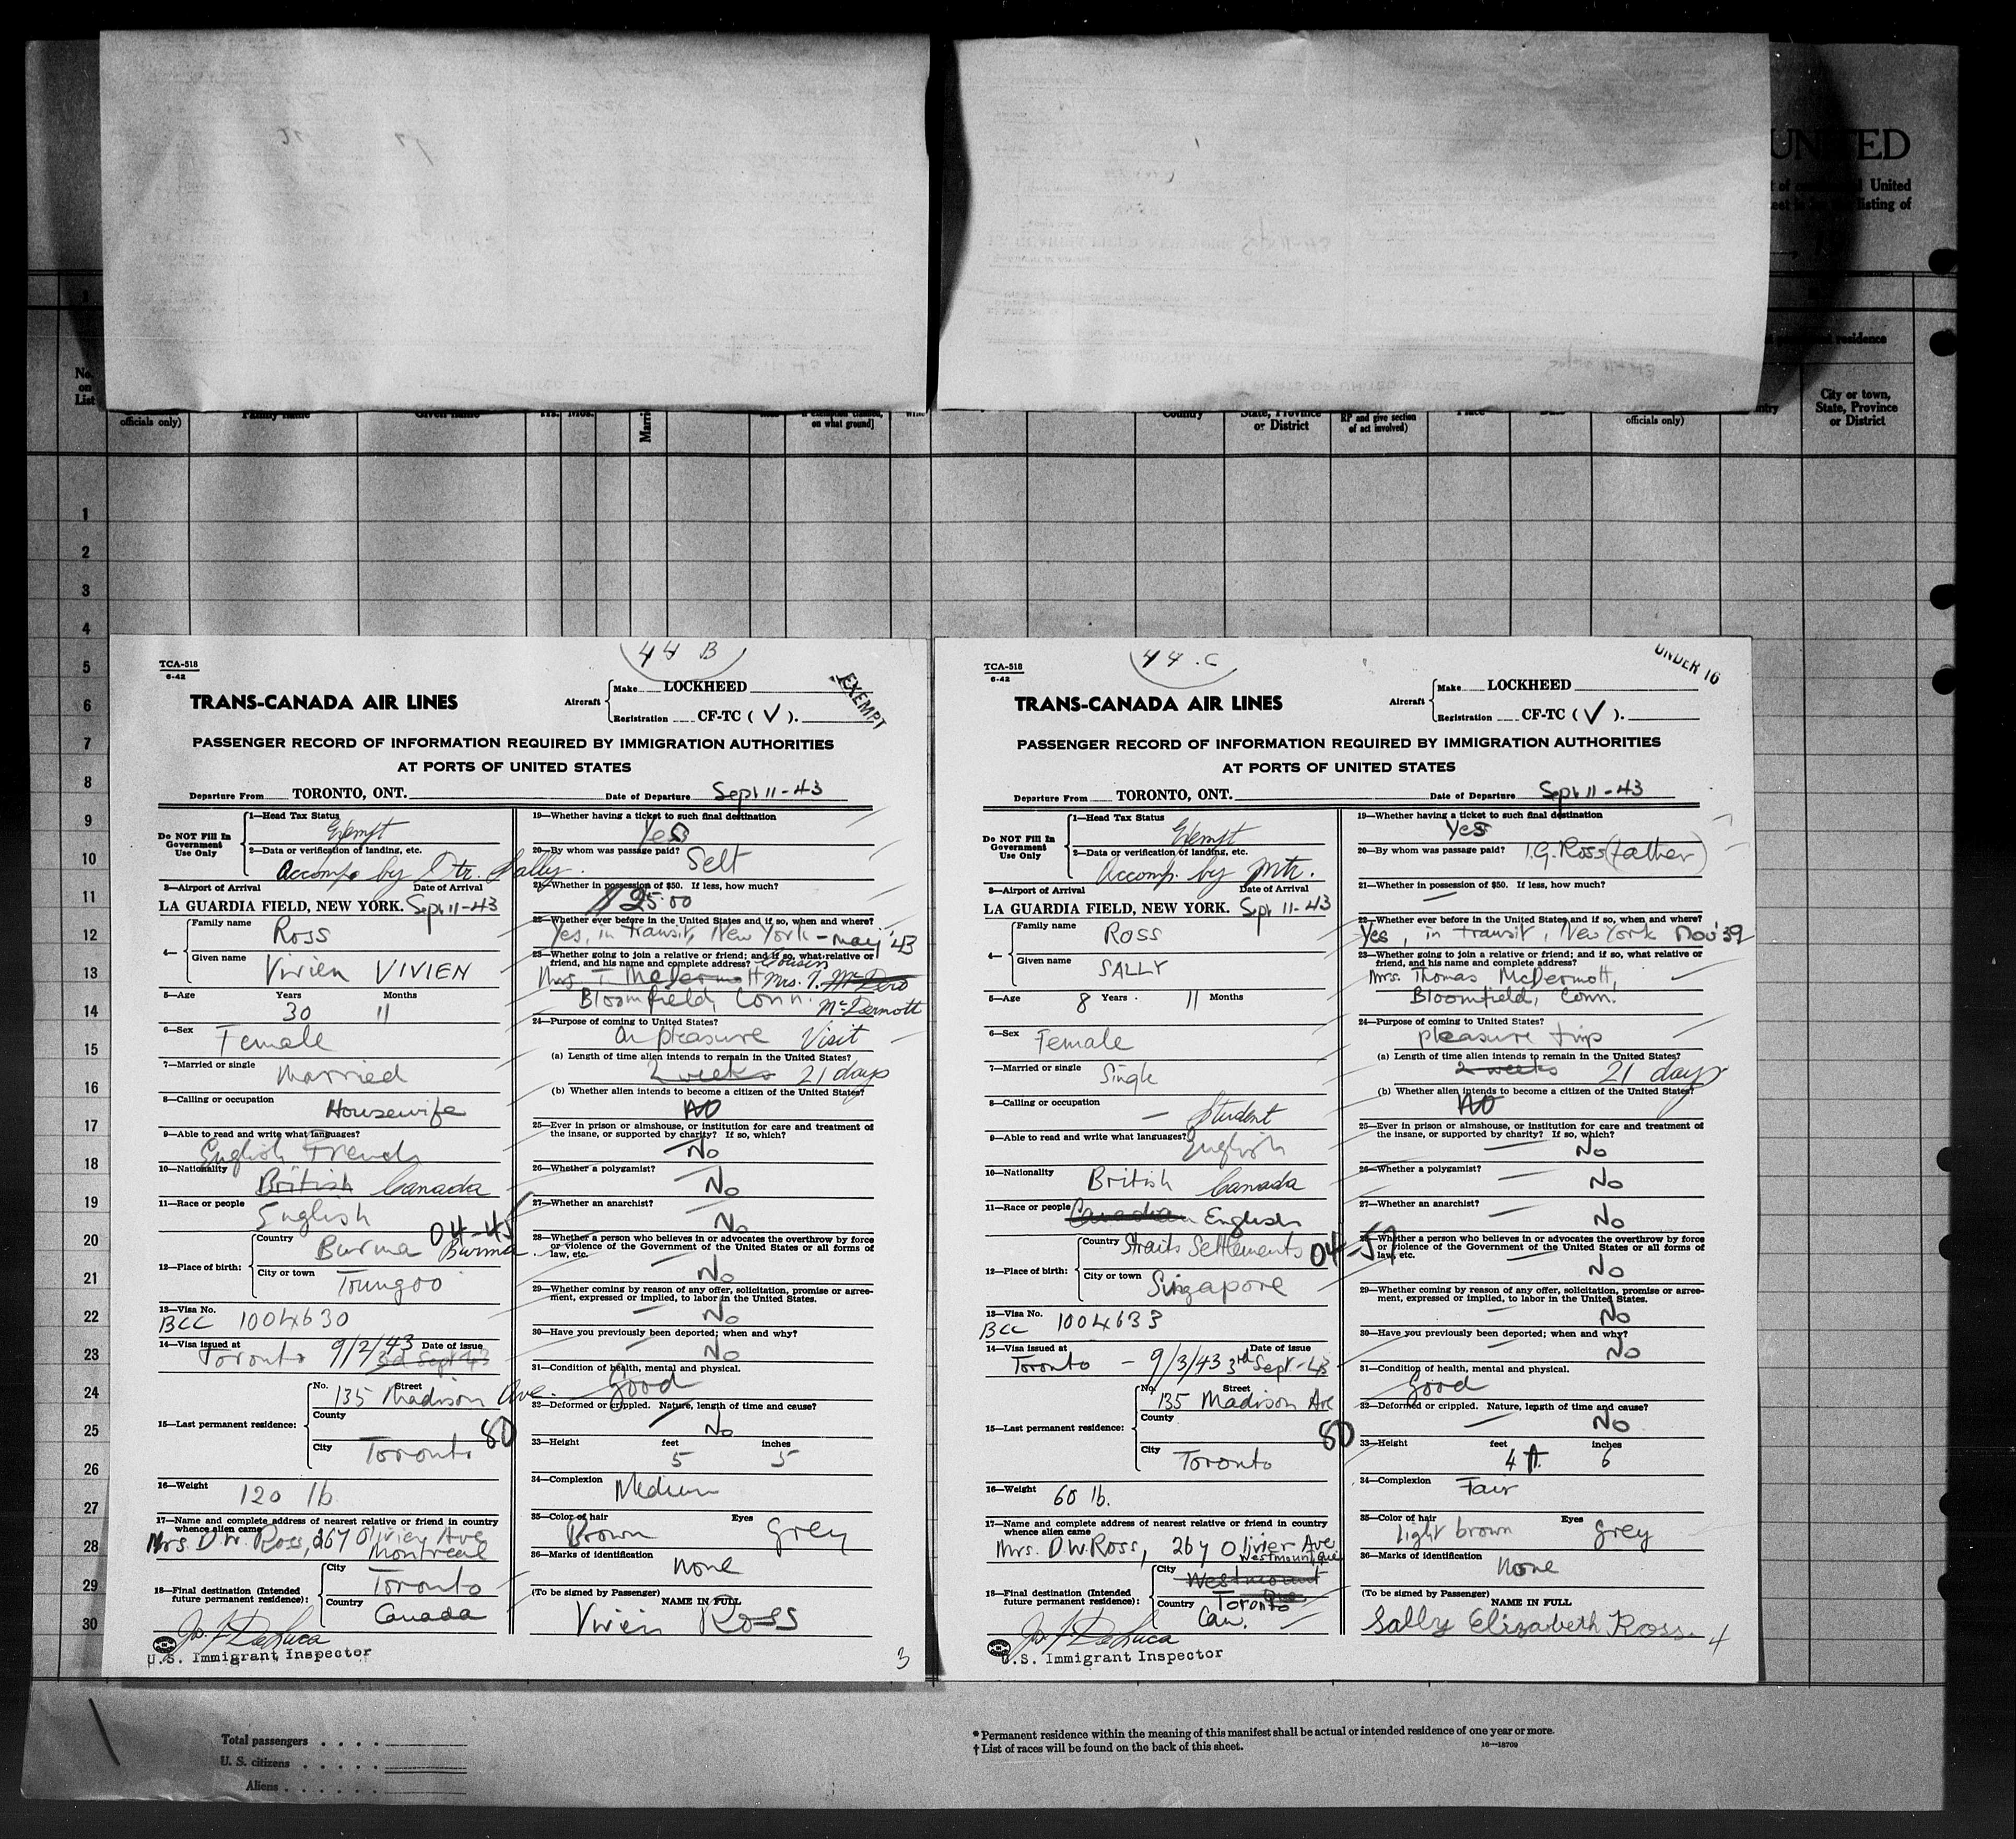 UNITED
United
listing of
residence
No.
on
List
officials only)
Family name
Given name
Yrs. Mos.
on what ground]
Country
State, Province
or District
RP and give section
of act involved)
Place
Date
officials only)
City or town,
State, Province
or District
1
2
3
4
5
6
7
8
9
10
11
12
13
14
15
16
17
18
19
20
21
22
23
24
25
26
27
28
29
30
44 B
TCA-518
6-42
EXEMPT
TRANS-CANADA AIR LINES
Aircraft
Make LOCKHEED
Registration CF-TC ( V ).
PASSENGER RECORD OF INFORMATION REQUIRED BY IMMIGRATION AUTHORITIES
AT PORTS OF UNITED STATES
Departure From TORONTO, ONT. Date of Departure Sept 11-43
Do NOT Fill In
Government
Use Only
1—Head Tax Status
Exempt
2—Data or verification of landing, etc.
Accomp by Dtr. Sally.
3—Airport of Arrival Date of Arrival
LA GUARDIA FIELD, NEW YORK. Sept 11-43
4— Family name
Ross
Given name
Vivien VIVIEN
5—Age Years Months
30 11
6—Sex
Female
7—Married or single
Married
8—Calling or occupation
Housewife
9—Able to read and write what languages?
English French
10—Nationality
British Canada
11—Race or people
English
04-45
12—Place of birth:
Country
Burma Burma
City or town
Toungoo
13—Visa No.
BCC 1004630
14—Visa issued at Date of issue
Toronto 9/2/43 3d Sept 43
15—Last permanent residence:
No. Street
135 Madison Ave.
County
City
Toronto 80
16—Weight
120 lb.
17—Name and complete address of nearest relative or friend in country
whence alien came
Mrs. D.W. Ross, 267 Olivier Ave
Montreal
18—Final destination (Intended
future permanent residence):
City
Toronto
Country
Canada
Jo. J. DeLuca
U.S. Immigrant Inspector
19—Whether having a ticket to such final destination
Yes
20—By whom was passage paid? Self
21—Whether in possession of $50. If less, how much?
$125.00
22—Whether ever before in the United States and if so, when and where?
Yes, in transit, New York - May '43
23—Whether going to join a relative or friend; and if so, what relative or
friend, and his name and complete address? Cousin
Mrs T. McDermott Mrs. T. McDero
Bloomfield, Conn. McDermott
24—Purpose of coming to United States?
On pleasure Visit
(a) Length of time alien intends to remain in the United States?
2 weeks 21 days
(b) Whether alien intends to become a citizen of the United States?
No
25—Ever in prison or almshouse, or institution for care and treatment of
the insane, or supported by charity? If so, which?
No
26—Whether a polygamist?
No
27—Whether an anarchist?
No
28—Whether a person who believes in or advocates the overthrow by force
or violence of the Government of the United States or all forms of
law, etc.
No
29—Whether coming by reason of any offer, solicitation, promise or agree-
ment, expressed or implied, to labor in the United States.
No
30—Have you previously been deported; when and why?
No
31—Condition of health, mental and physical.
Good
32—Deformed or crippled. Nature, length of time and cause?
No
33—Height feet inches
5 5
34—Complexion
Medium
35—Color of hair Eyes
Brown Grey
36—Marks of identification
none
(To be signed by Passenger)
NAME IN FULL
Vivien Ross
3
44 C
TCA-518
6-42
UNDER 16
TRANS-CANADA AIR LINES
Aircraft
Make LOCKHEED
Registration CF-TC ( V ).
PASSENGER RECORD OF INFORMATION REQUIRED BY IMMIGRATION AUTHORITIES
AT PORTS OF UNITED STATES
Departure From TORONTO, ONT. Date of Departure Sept 11-43
Do NOT Fill In
Government
Use Only
1—Head Tax Status
Exempt
2—Data or verification of landing, etc.
Accomp. by Mtr.
3—Airport of Arrival Date of Arrival
LA GUARDIA FIELD, NEW YORK. Sept 11-43
4— Family name
Ross
Given name
SALLY
5—Age 8 Years 11 Months
6—Sex
Female
7—Married or single
Single
8—Calling or occupation
— Student
9—Able to read and write what languages?
English
10—Nationality
British Canada
11—Race or people
Canadian English
12—Place of birth:
Country
Straits Settlements 04-59
City or town
Singapore
13—Visa No.
BCC 1004633
14—Visa issued at Date of issue
Toronto - 9/3/43 3rd Sept-43
15—Last permanent residence:
No. Street
135 Madison Ave
County
City
Toronto 80
16—Weight
60 lb.
17—Name and complete address of nearest relative or friend in country
whence alien came
Mrs. D.W. Ross, 267 Olivier Ave
Westmount Que
18—Final destination (Intended
future permanent residence):
City
Westmount
Que
Toronto
Country
Can.
Jo. J. DeLuca
U.S. Immigrant Inspector
19—Whether having a ticket to such final destination
Yes
20—By whom was passage paid? I.G. Ross (father)
21—Whether in possession of $50. If less, how much?
—
22—Whether ever before in the United States and if so, when and where?
Yes, in transit, New York Nov '39
23—Whether going to join a relative or friend; and if so, what relative or
friend, and his name and complete address?
Mrs. Thomas McDermott,
Bloomfield, Conn.
24—Purpose of coming to United States?
pleasure trip
(a) Length of time alien intends to remain in the United States?
2 weeks 21 days
(b) Whether alien intends to become a citizen of the United States?
No
25—Ever in prison or almshouse, or institution for care and treatment of
the insane, or supported by charity? If so, which?
No
26—Whether a polygamist?
No
27—Whether an anarchist?
No
28—Whether a person who believes in or advocates the overthrow by force
or violence of the Government of the United States or all forms of
law, etc.
No
29—Whether coming by reason of any offer, solicitation, promise or agree-
ment, expressed or implied, to labor in the United States.
No
30—Have you previously been deported; when and why?
No
31—Condition of health, mental and physical.
Good
32—Deformed or crippled. Nature, length of time and cause?
No
33—Height feet inches
4 ft. 6
34—Complexion
Fair
35—Color of hair Eyes
Light brown Grey
36—Marks of identification
None
(To be signed by Passenger)
NAME IN FULL
Sally Elizabeth Ross.
4
Total passengers . . . .
U. S. citizens . . . . .
Aliens . . . . . .
* Permanent residence within the meaning of this manifest shall be actual or intended residence of one year or more.
† List of races will be found on the back of this sheet.
16—18709